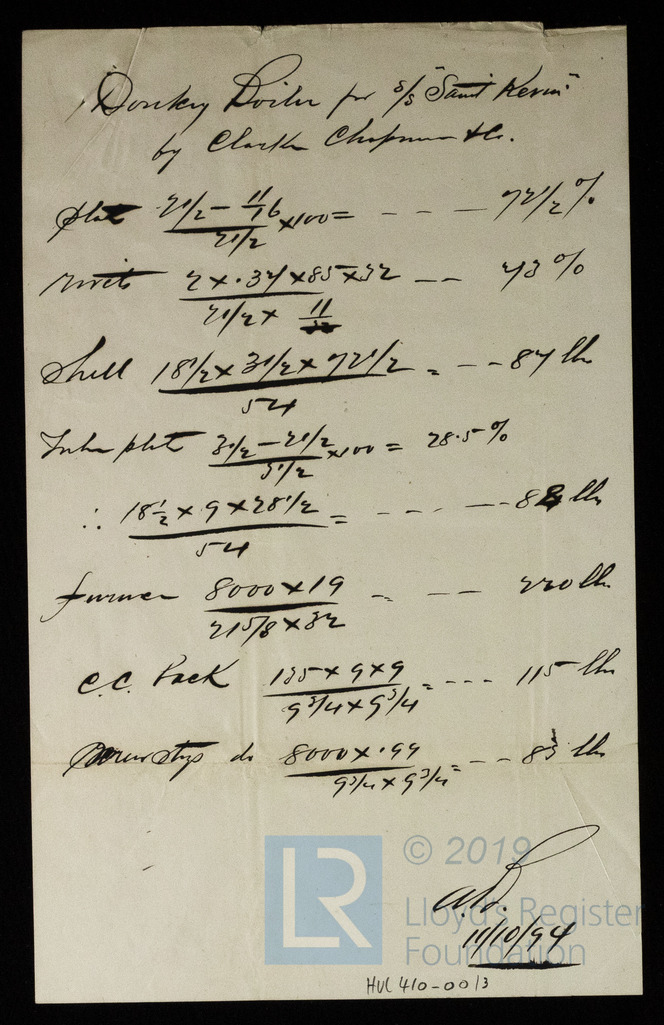 Donkey Boiler for s/s "Saint Kevin"
by Clarke Chapman & Co.
plate (2 1/2 - 11/16) / (2 1/2) × 100 = - - - 72 1/2 %
rivets (2 × .37 × 85 × 32) / (2 1/2 × 11) - - 73 %
Shell (18 1/2 × 3 1/2 × 72 1/2) / 54 = - - - 87 lbs
Tube plate (3 1/2 - 2 1/2) / (3 1/2) × 100 = 28.5 %
∴ (18 1/2 × 9 × 28 1/2) / 54 = - - - - - 88 lbs
furnace (8000 × 19) / (21 5/8 × 32) = - - - 220 lbs
C.C. back (135 × 9 × 9) / (9 3/4 × 9 3/4) = - - - 115 lbs
Screw stays do (8000 × .99) / (9 3/4 × 9 3/4) = - - 83 lbs
11/10/94
© 2019
LR Lloyd's Register
Foundation
HUL 410-0013